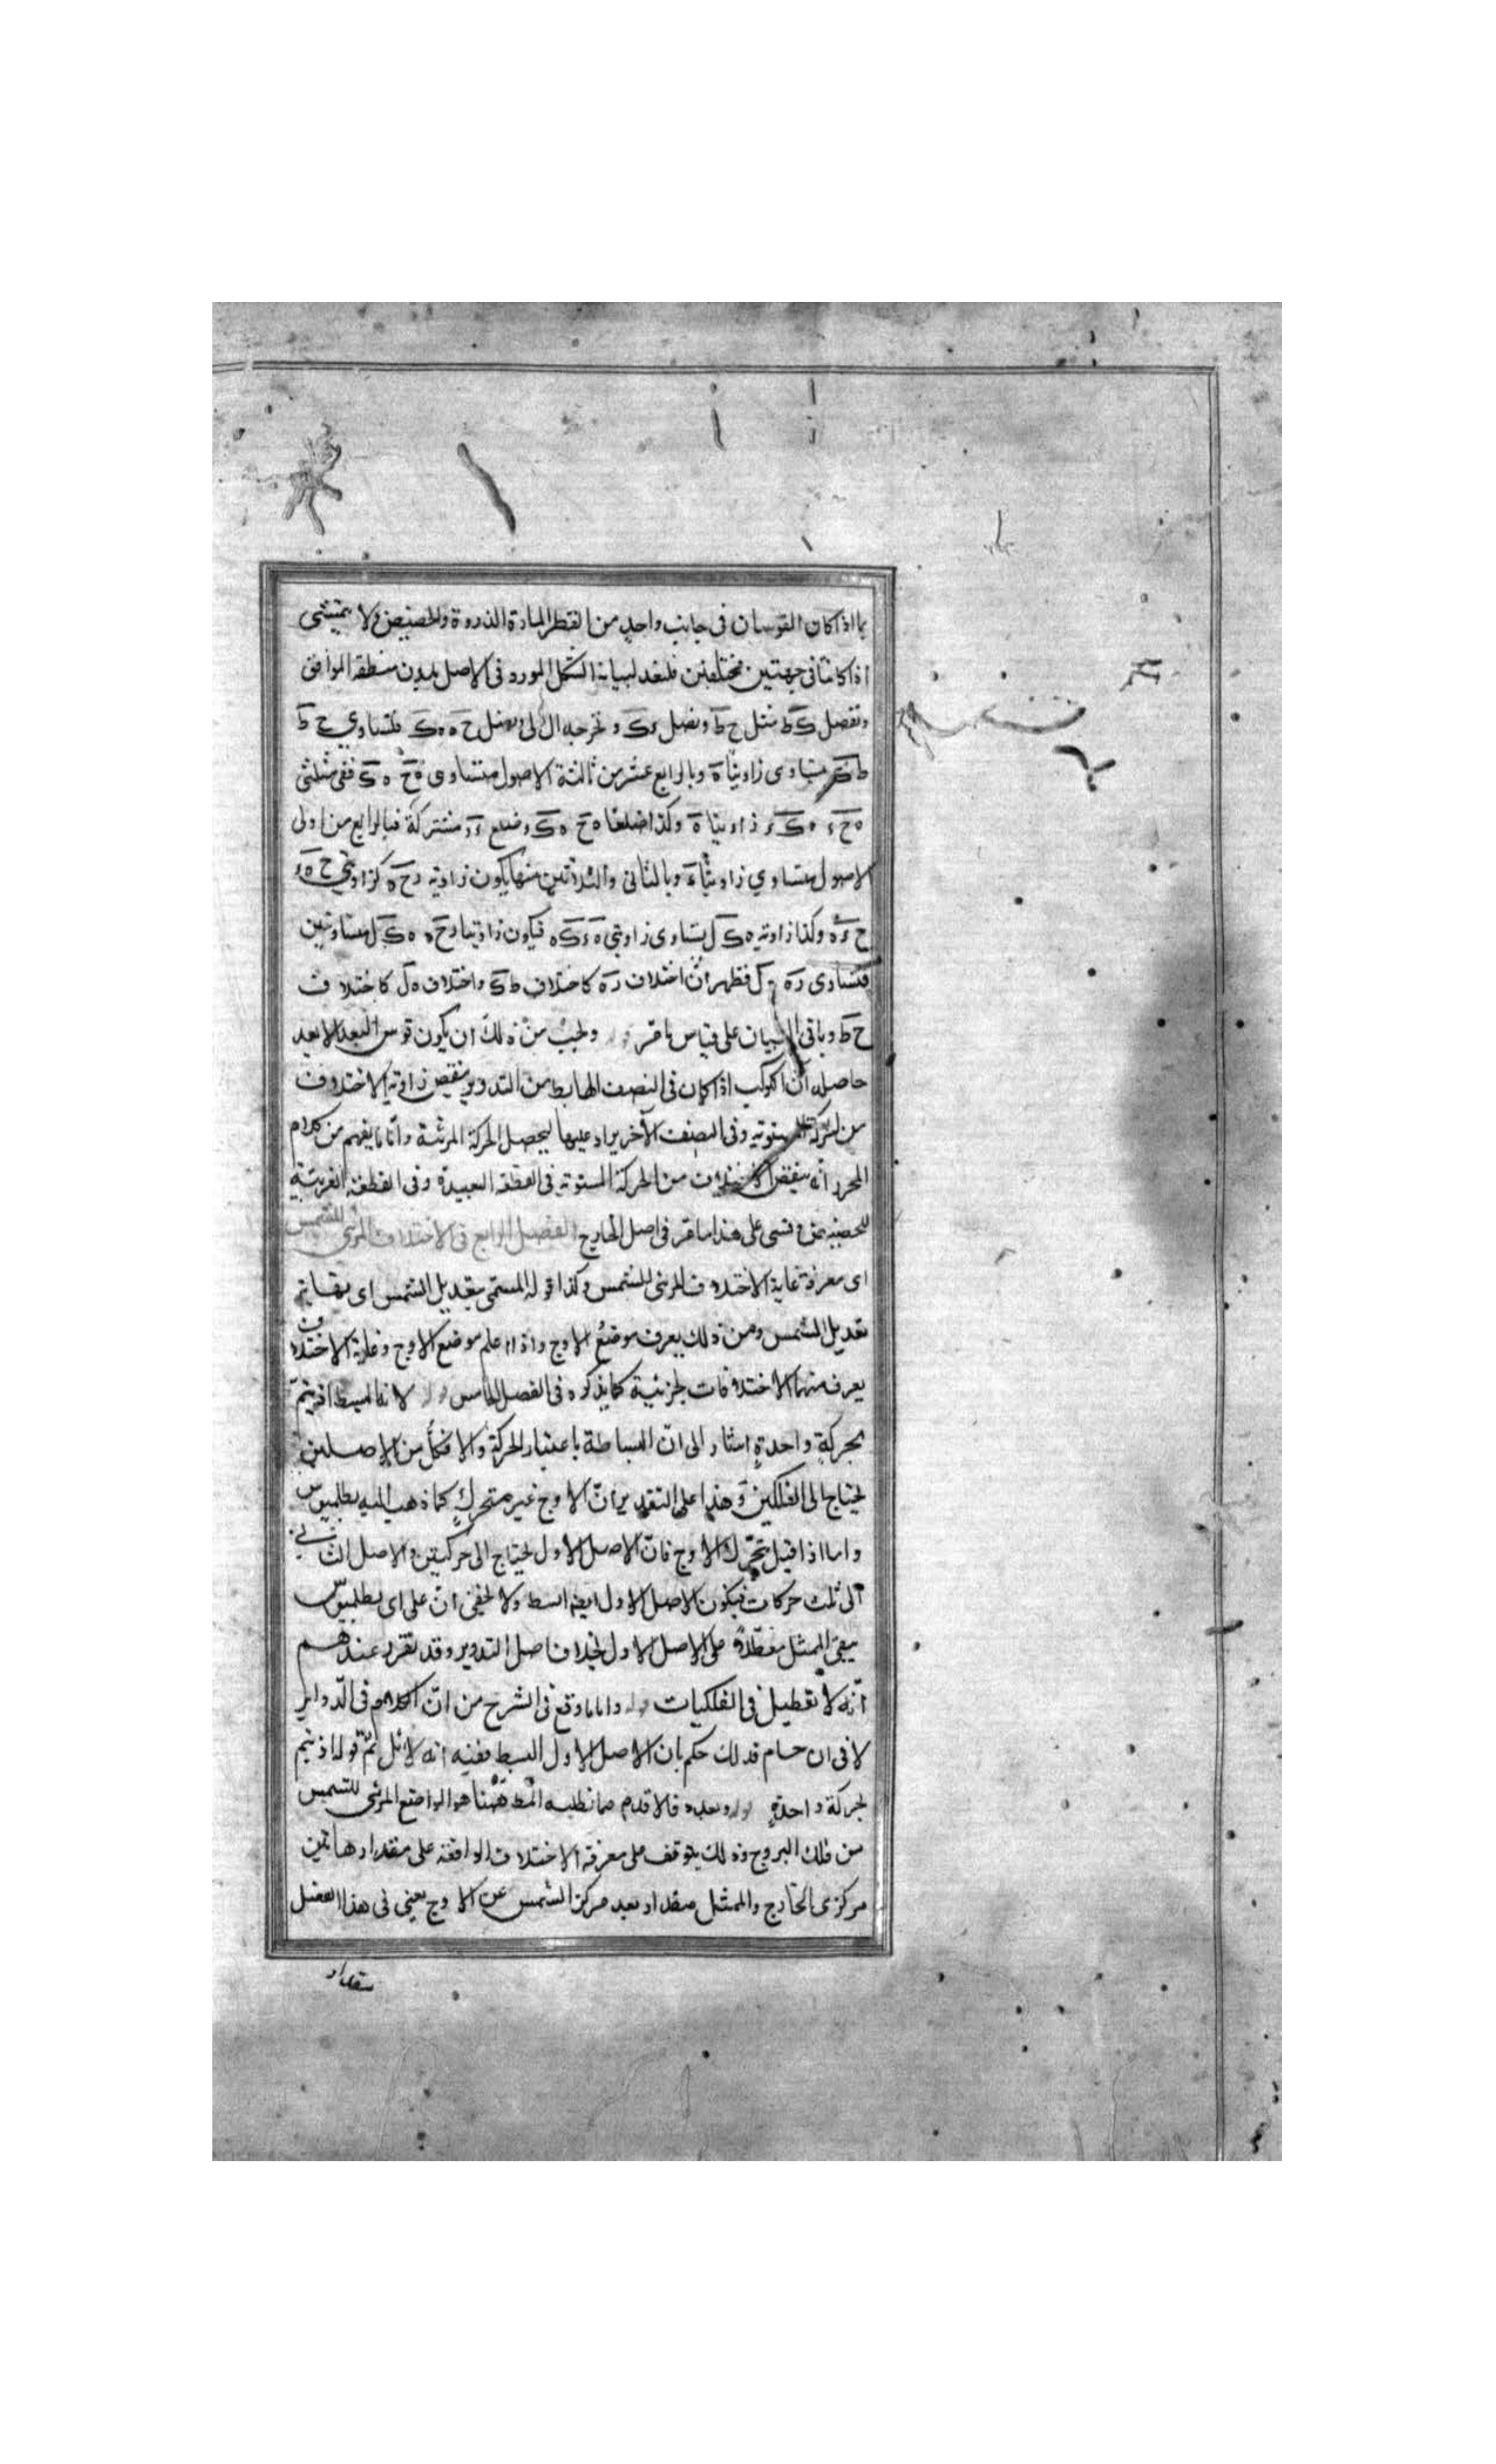 بما اذا كان القوسان فى جانب واحد من القطر المارة الذروة والحضيض ولا يتمشى
اذا كانتا فى جهتين مختلفتين فلنعد لبيانه الشكل المورد فى الاصل بدون منطقة الموافق
ونفصل ك ط مثل ح ط ونصل ء ك ونخرجه الى ل ونصل ح ه ه ك فلتساوي ح ط
ط ك يتساوى زاويتا ه وبالرابع عشر من ثالثة الاصول يتساوى ه ح ه ك ففى مثلثى
ه ح ء ه ك ء زاويتا ه وكذا ضلعا ه ح ه ك وضلع ه ء مشتركة فبالرابع من اولى
الاصول يتساوي زاويتا ء وبالثانى والثلاثين منها يكون زاوية ر ح ه كزاويتي ح ه ء
ح ء ه وكذا زاوية ه ك ل يساوى زاويتي ه ء ك ه فيكون زاويتا ر ح ه ه ك ل متساويتين
فتساوى ر ه ه ل فظهر ان اختلاف ر ه كاختلاف ط ك واختلاف ه ل كاختلاف
ح ط وباقى البيان على قياس ما مر ويجب من ذلك ان يكون قوس البعد الابعد
حاصله ان الكوكب اذا كان فى النصف الهابط من التدوير ينقص زاوية الاختلاف
من الحركة المستوية وفى النصف الآخر يزاد عليها ليحصل الحركة المرئية واما ما يفهم من كلام
المحرر انه ينقص الاختلاف من الحركة المستوية فى القطعة البعيدة وفى القطعة القريبة
للحضيضية فقس على هذا ما مر فى اصل الخارج الفصل الرابع فى الاختلاف المرئى للشمس
اى معرفة غاية الاختلاف المرئى للشمس وكذا قوله المسمى بتعديل الشمس اى بغاية
تعديل الشمس ومن ذلك يعرف موضع الاوج واذا علم موضع الاوج وغاية الاختلاف
يعرف منهما الاختلافات الجزئية كما يذكره فى الفصل الخامس لانها ابسط اذ يتم
بحركة واحدة اشار الى ان البساطة باعتبار الحركة والا فكل من الاصلين
يحتاج الى الفلكين وهذا على التقدير ان الاوج غير متحرك كما ذهب اليه بطلميوس
واما اذا قيل بتحرك الاوج فان الاصل الاول يحتاج الى حركتين والاصل الثانى
الى ثلث حركات فيكون الاصل الاول ايضا ابسط ولا يخفى ان على راى بطلميوس
يبقى الممثل معطلا على الاصل الاول بخلاف اصل التدوير وقد تقرر عندهم
انه لا تعطيل فى الفلكيات واما ما وقع فى الشرح من ان الكلام فى الدواير
لا فى الاجسام فذلك حكم بان الاصل الاول ابسط ففيه انه لا يلائم قوله اذ يتم
بحركة واحدة وبعده فالاقدم مما نطلبه المط ههنا هو المواضع المرئى للشمس
من فلك البروج وذلك يتوقف على معرفة الاختلاف الواقعة على مقدار ما بين
مركزى الخارج والممثل مقدار بعد مركز الشمس عن الاوج يعنى فى هذا الفصل
مقدار